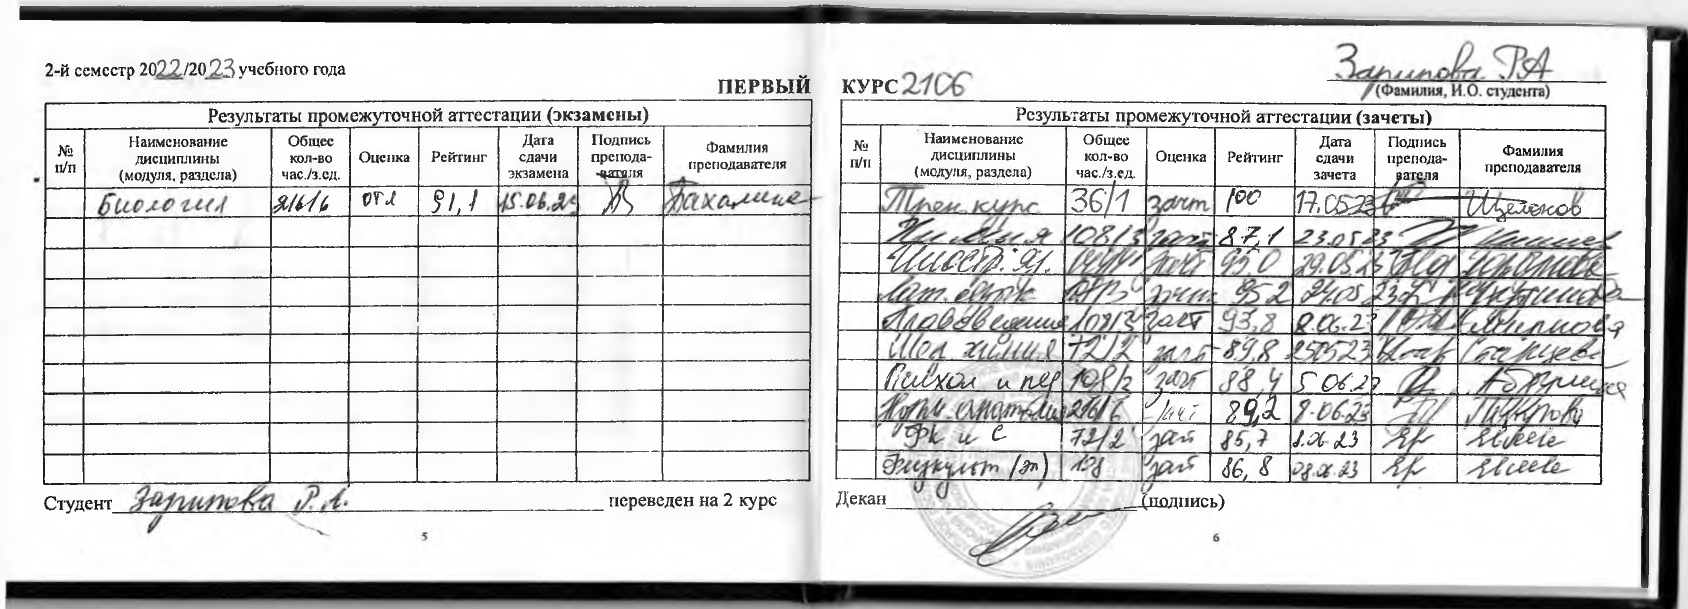 2-й семестр 2022/2023 учебного года
ПЕРВЫЙ
Результаты промежуточной аттестации (экзамены)
№ п/п Наименование дисциплины (модуля, раздела) Общее кол-во час./з.ед. Оценка Рейтинг Дата сдачи экзамена Подпись препода-вателя Фамилия преподавателя
Биология 216/6 отл 91,1 15.06.23
Студент Зарипова Р.А. переведен на 2 курс
5
КУРС 2106
Зарипова РА
(Фамилия, И.О. студента)
Результаты промежуточной аттестации (зачеты)
№ п/п Наименование дисциплины (модуля, раздела) Общее кол-во час./з.ед. Оценка Рейтинг Дата сдачи зачета Подпись препода-вателя Фамилия преподавателя
Трен курс 36/1 зачт 100 17.05.23 Щелоков
Химия 108/3 зачт 87,1 23.05.23
Иностр. яз. зачт 95,0 29.05.23
Лат. язык 108/3 зачт 95 2 24.05 23
108/3 зачт 93,8 8.06.23
химия 72/2 зачт 89,8 250523
Психол и пед 108/2 зачт 88,4 5 06.23
Норм анатомия 216/6 зачт 89,2 9.06.23
ФК и С 72/2 зач 85,7 8.06.23
Физкульт (эл) 138 зач 86,8 08.06.23
Декан (подпись)
6